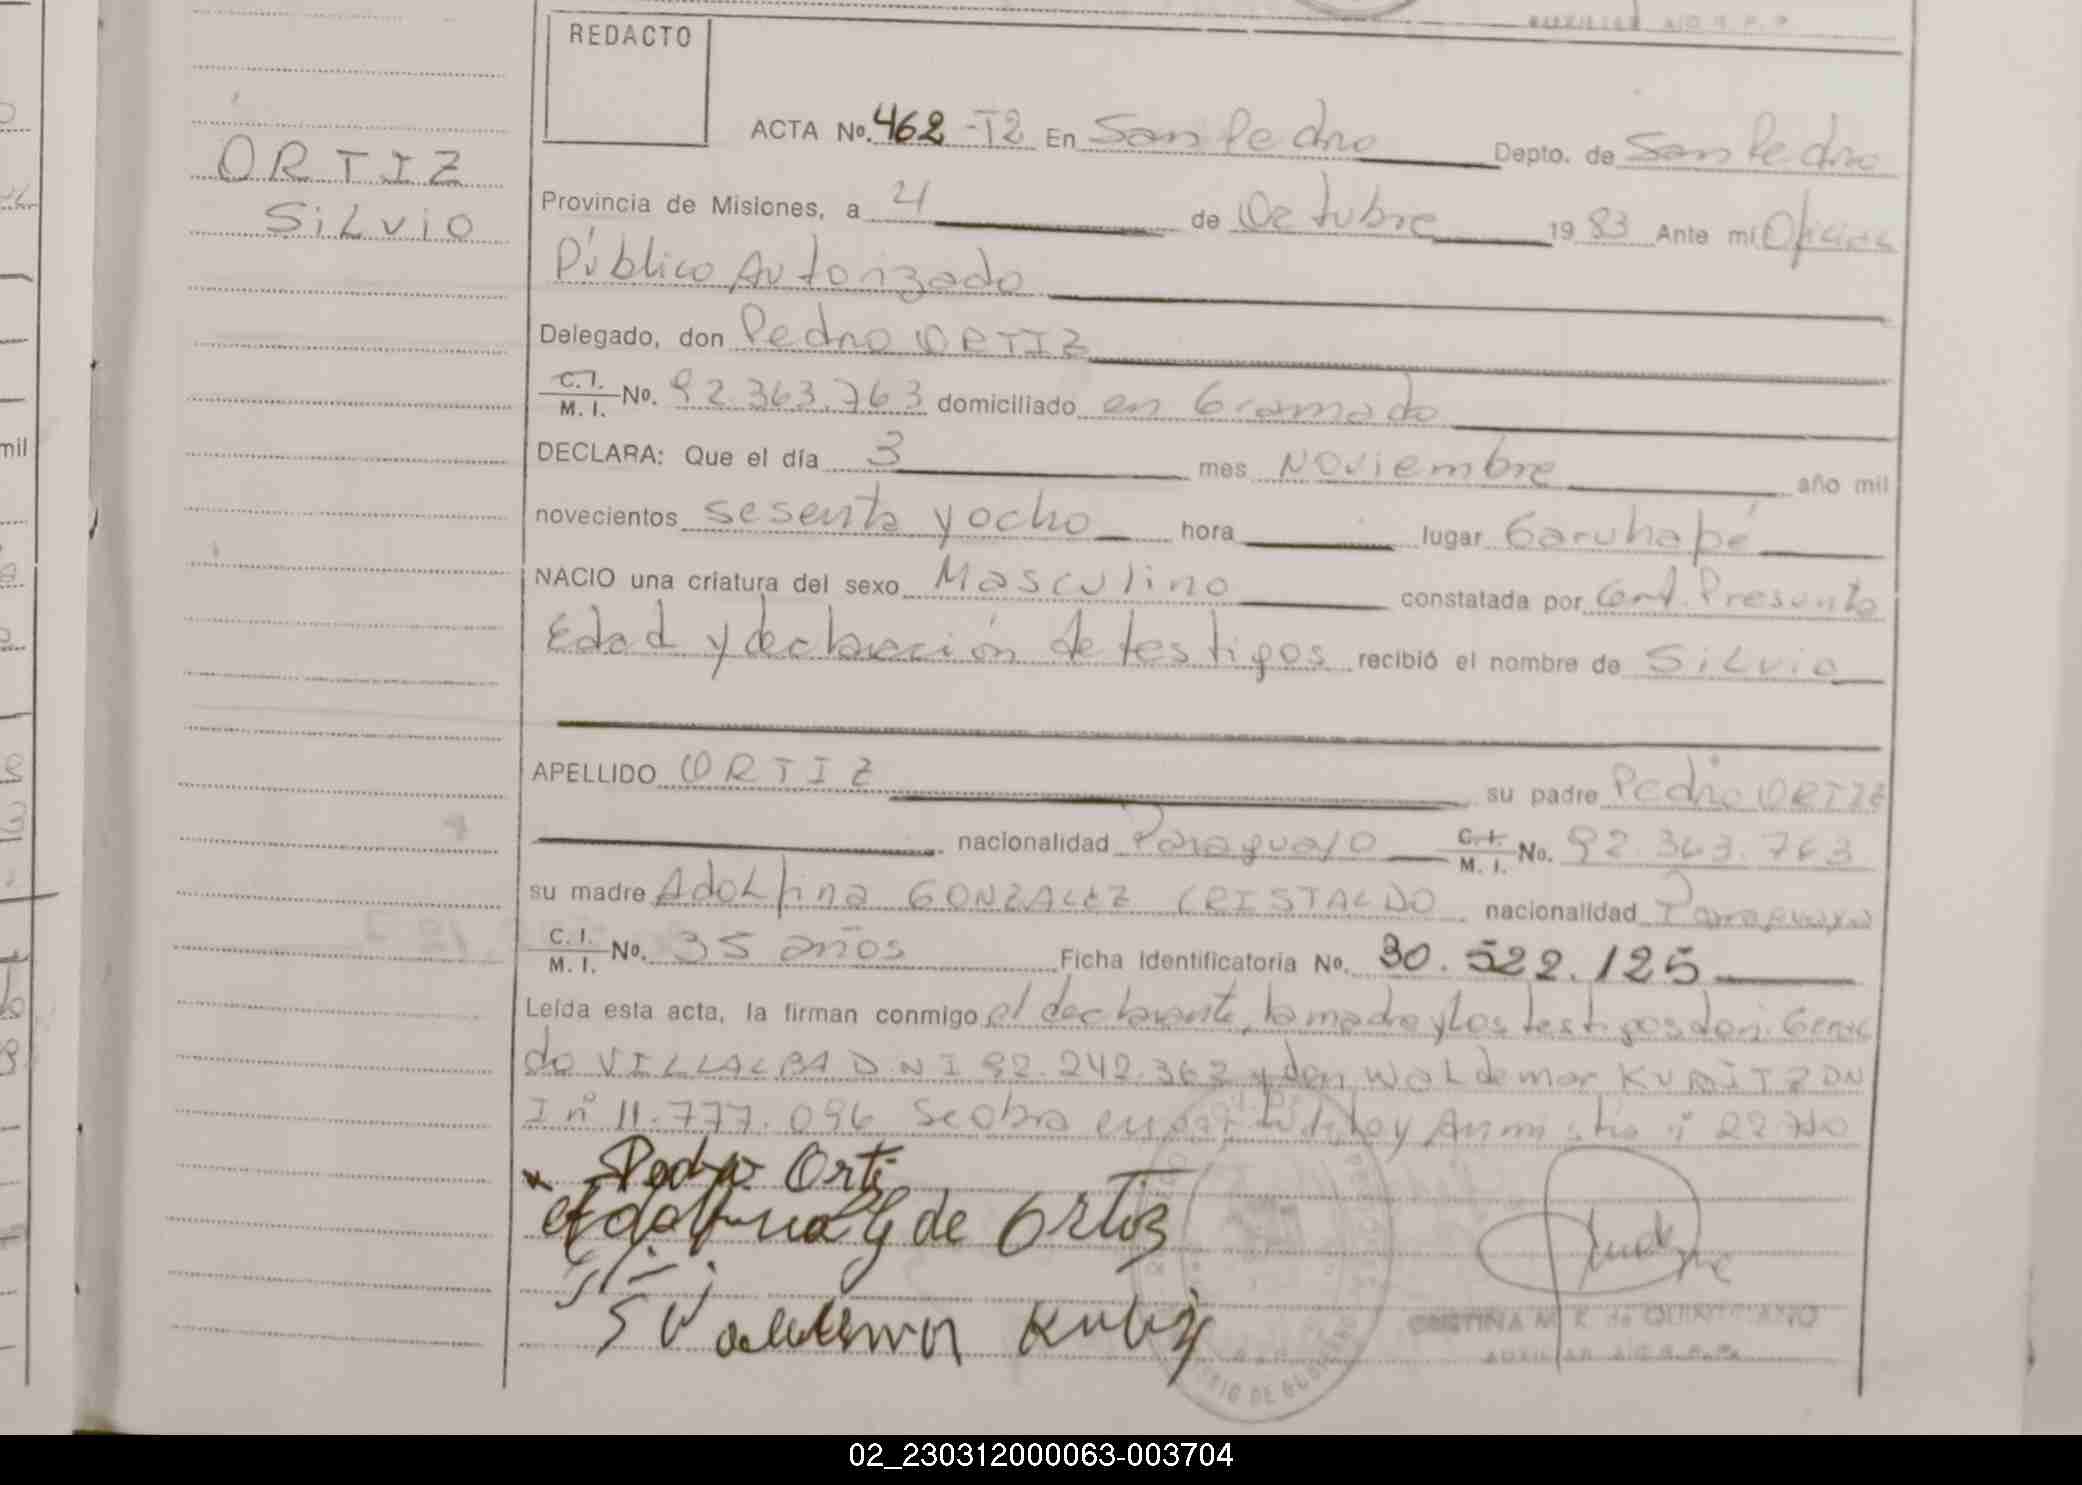 REDACTO
ORTIZ
SiLvio
ACTA No. 462-T2 En San Pedro Depto. de San Pedro
Provincia de Misiones, a 4 de Octubre 1983 Ante mí Oficial
Público Autorizado
Delegado, don Pedro ORTIZ
C.I. M.I. No. 92.363.763 domiciliado en Gramado
DECLARA: Que el día 3 mes Noviembre año mil
novecientos sesenta y ocho hora lugar Garuhapé
NACIO una criatura del sexo Masculino constatada por Cert. Presunta
Edad y declaración de testigos recibió el nombre de SiLvio
APELLIDO ORTIZ su padre Pedro ORTIZ
nacionalidad Paraguayo C.I. M.I. No. 92.363.763
su madre AdoLfina GONZALEZ CRISTALDO nacionalidad Paraguaya
C.I. M.I. No. 35 años Ficha Identificatoria No. 30.522.125
Leída esta acta, la firman conmigo el declarante, la madre y Los testigos don
do VILLALBA D.N.I 92.242.362 y don WaLdemar KUBITZ DN
I nº 11.777.096 Se obra en Ley Amnistía 22
Pedro Orti
Adolfina G de Ortiz
Kubiz
CRISTINA M. R. de
AUXILIAR
02_230312000063-003704